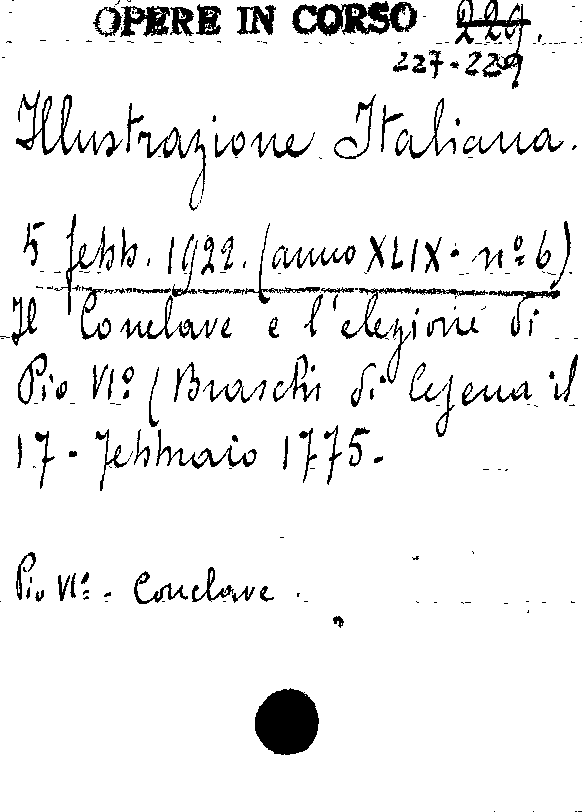 OPERE IN CORSO 229.
227-229
Illustrazione Italiana.
5 febb. 1922. (anno XLIX - nº 6)
Il Conclave e l'elezione di
Pio VIº (Braschi di Cesena il
17 - Febbraio 1775 -
Pio VIº - Conclave.